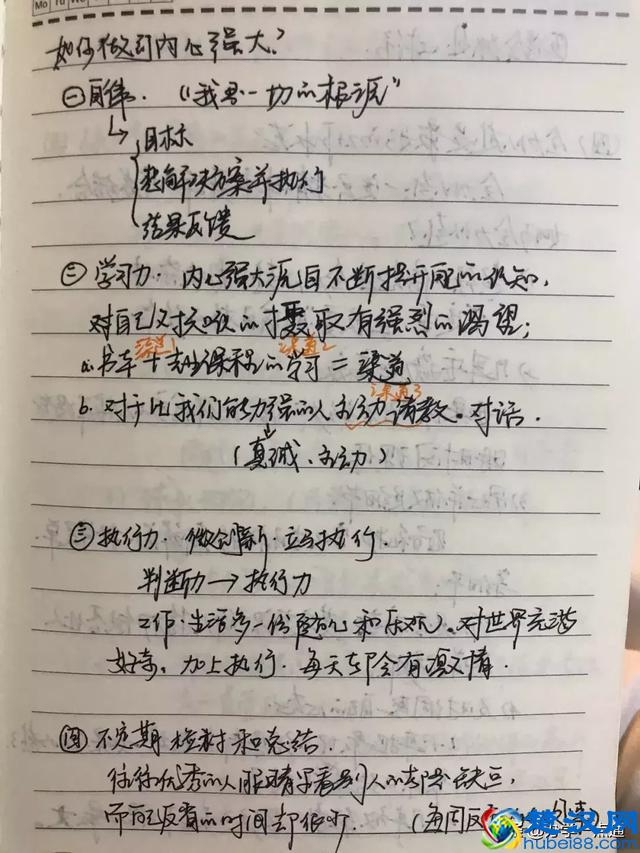 Mo Tu We
如何做到内心强大?
㊀自律. "我是一切的根源"
目标
想解决方案并执行
结果反馈
㊁学习力. 内心强大源自不断提升自己的认知,
对自己又扩吸的摄取有强烈的渴望;
渠道1 渠道2
a.书本+去上课程的学习=渠道
渠道3
b. 对于比我们能力强的人主动请教。对话.
(真诚、主动)
㊂执行力. 微创新.立马执行.
判断力→执行力
工作.生活多一份随心和乐观.对世界充满
好奇。加上执行.每天都会有激情.
㊃不定期检讨和总结.
往往优秀的人眼睛里看别人的都是缺点,
而自己反省的时间却很少. (每周反
楚汉网
hubei88.com